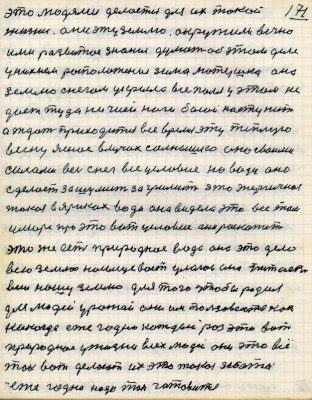 171
это людями делается для их такой
жизни. они эту землю. окружили вечно
или развитое знания думают об этом деле
у них нем расположена зима матушка она
землю снегом укрыла все поля у этом не
дает туда не чией ноги босой наступить
а ждет приходится все время эту теплую
весну ясное в лучах солнышко оно своими
силами вес снег все условие на воду оно
сделает зашумит загремит это журчная
такая в яриках вода она видела это все там
у море про это вот условие она расскажет
это же есть природная вода она это дело
всю землю
всю нашу землю для того чтобы родил
для людей урожай они им пользовался как
никогда еже годно каждый раз это вот
природное у жизни всех людей они это всё
так вот делают их это такая забота
еже годно надо так готовится